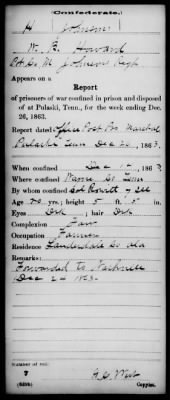 Confederate.
H Johnson
W. E. Howard
Pvt Co M Johnson Regt
Appears on a
Report
of prisoners of war confined in prison and disposed
of at Pulaski, Tenn., for the week ending Dec.
26, 1863.
Report dated Office Post Pro Marshal
Pulaski Tenn Dec 26, 1863
When confined Dec 1 , 1863
Where confined Wayne Co Tenn
By whom confined
Age 20 yrs; height 5 ft. 5 in.
Eyes Drk ; hair Drk
Complexion Fair
Occupation Farmer
Residence Lauderdale Co Ala
Remarks:
Forwarded to Nashville
Dec 2 1863.
Number of roll:
7
Copyist.